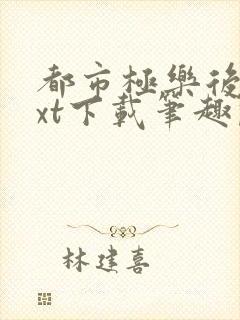 都市極樂後
xt下載筆趣
林建喜